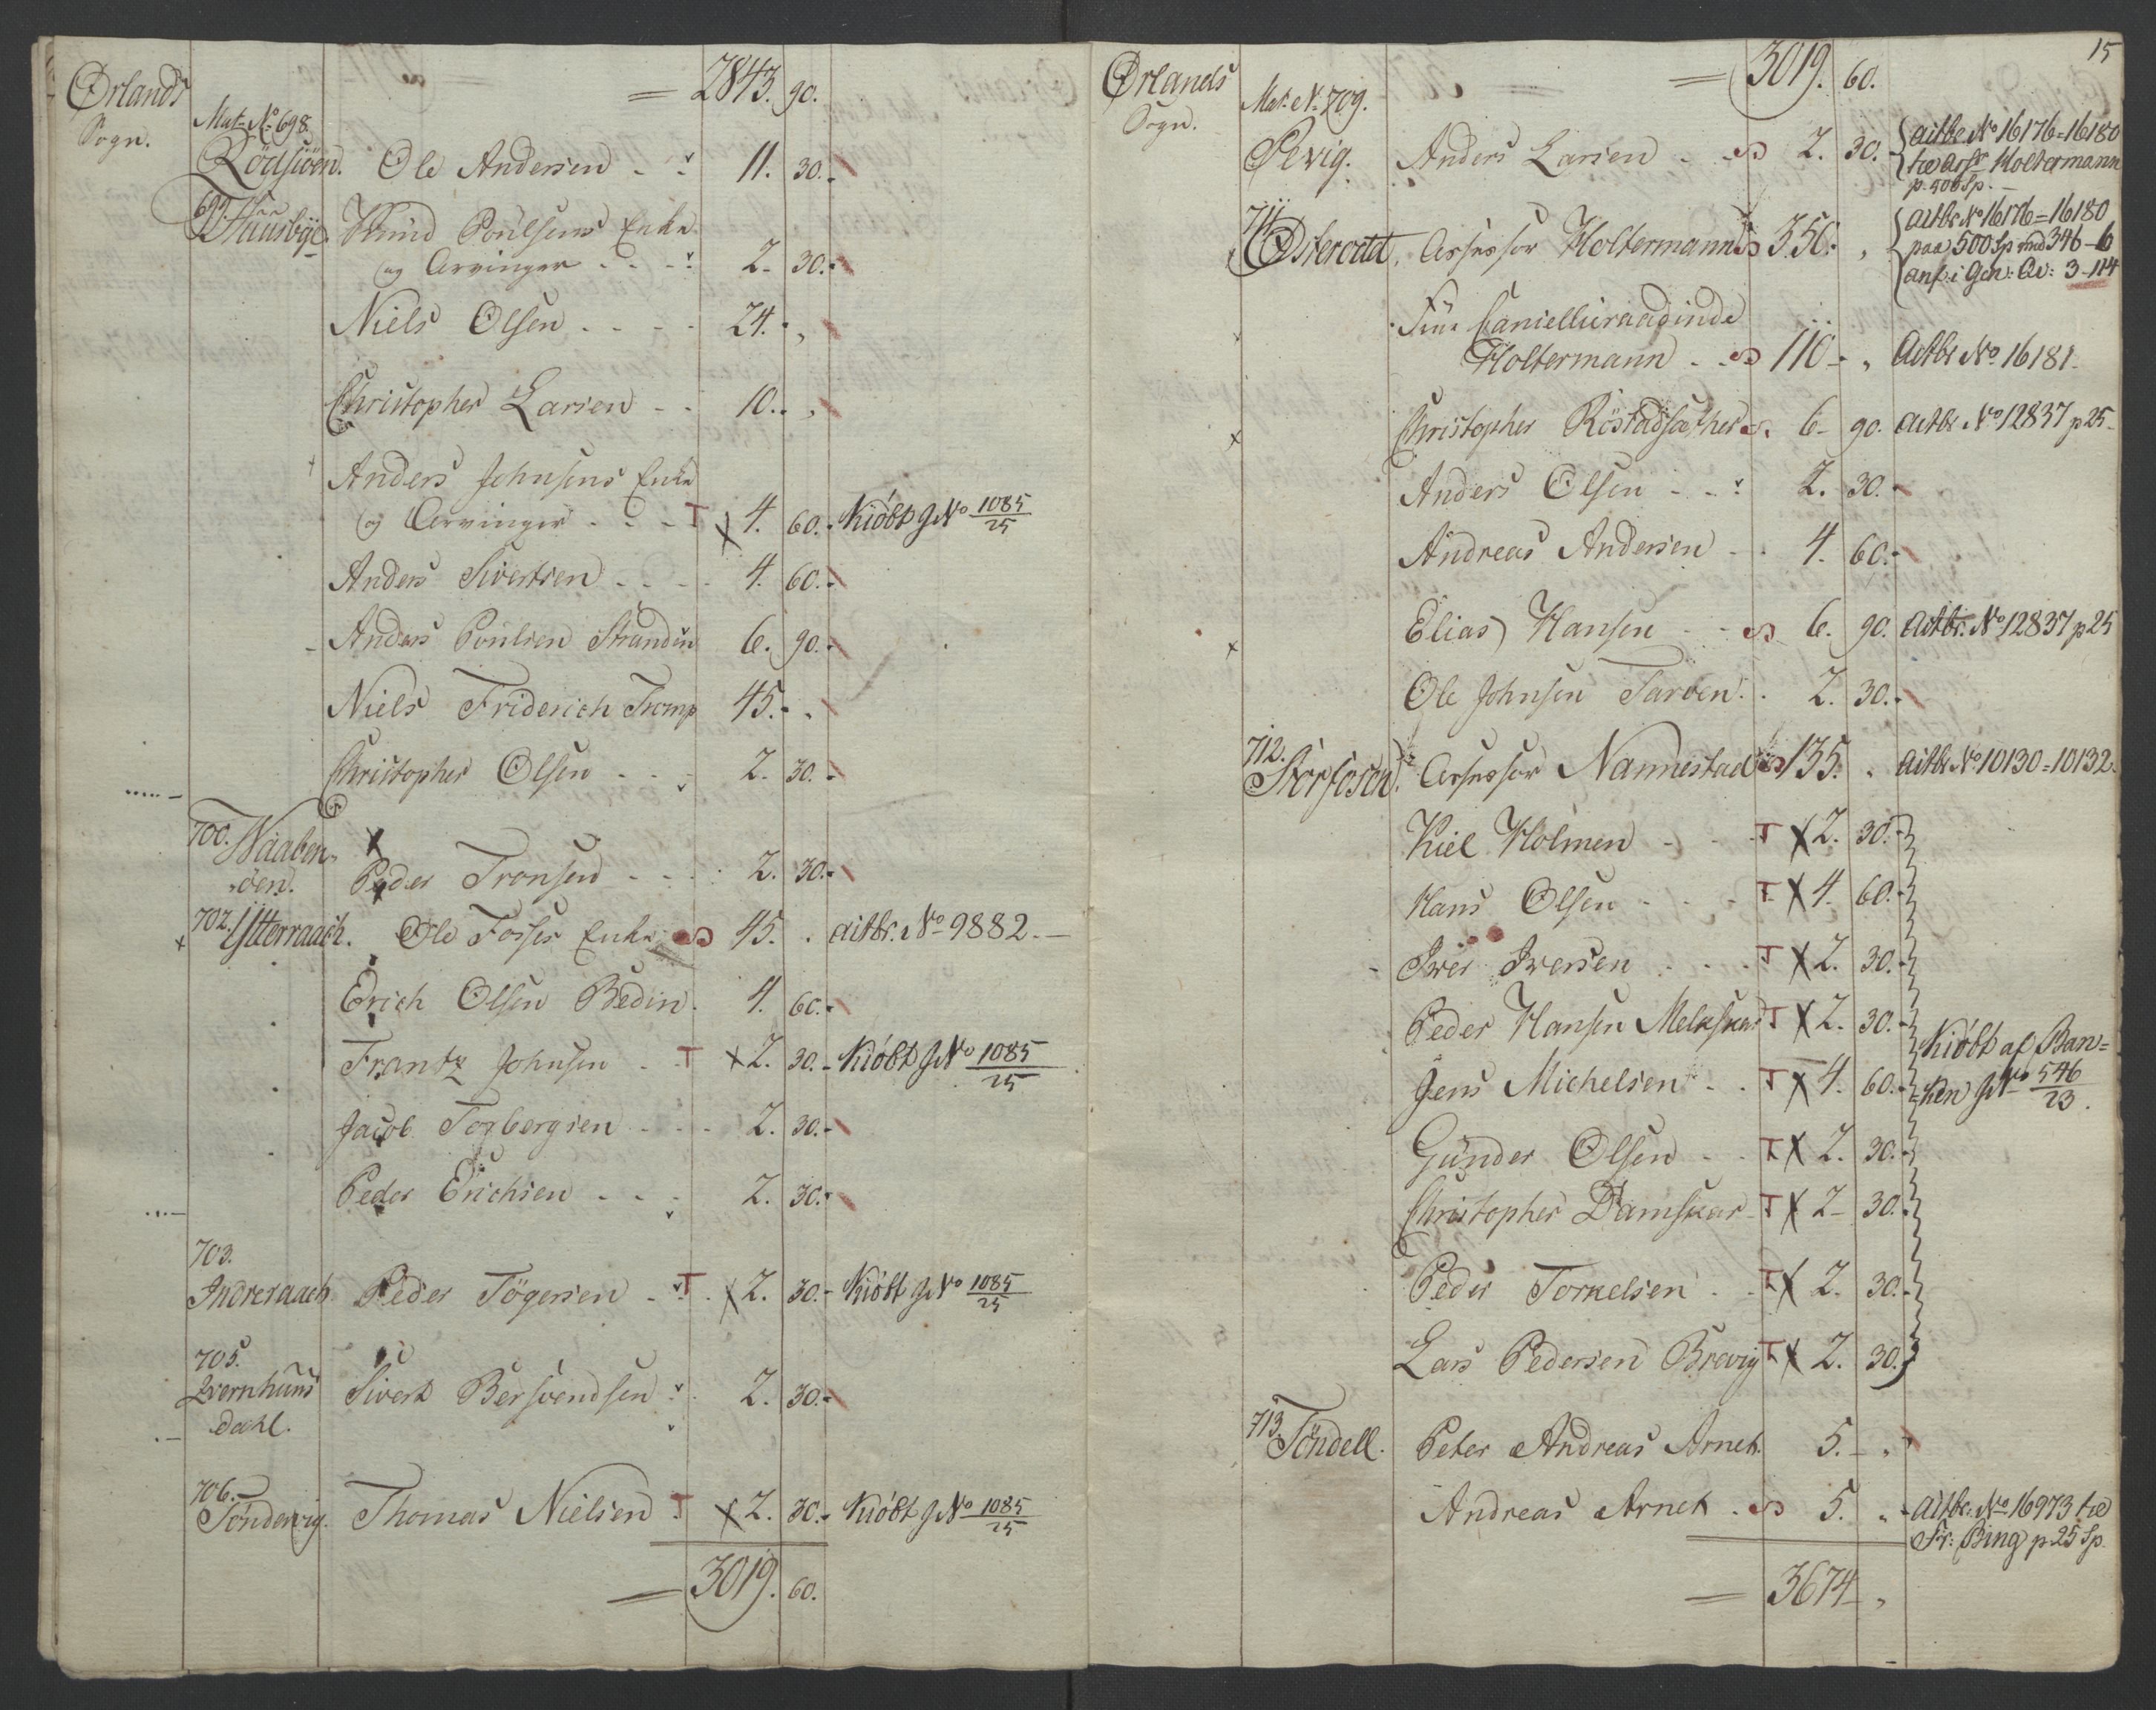 Ørlands
Sogn.
= 2843. 90.
Mat. No 698.
Rödsjöen. Ole Andersen - - 11. 30.-
699.
Haüsbÿe. Knüd Poülsens Enke
og Arvinger - - - 2- 30.-
Niels Olsen - - - - 24.- ,
Christopher Larsen - - 10.- ,
Anders Johnsens Enke
og Arvinger - - - T x 4. 60.- Kiöbt J No 1085/25
Anders Sivertsen - - - - 4. 60.-
Anders Poülsen Stranden 6. 90.-
Niels Friderich Tromp 45.- .
Christopher Olsen - - - 2. 30.-
700. Naaben-
öen. Peder Tronsen - - - - 2. 30.-
x 702. Ytterraach. Ole Fosses Enke S 45. . actbr. No 9882.-
Erich Olsen Bedin. 4. 60.-
Frantz Johnsen - - T x 2. 30.- Kiöbt J No 1085/25
Jacob Torbergsen - - - 2. 30.-
Peder Erichsen - - - 2. 30.-
703.
Indreraach Peder Tögersen - T. x 2. 30.- Kiöbt J No 1085/25
705.
Qvernhuus
dahl. Sivert Bersvendsen 2. 30.-
706.
Töndervig. Thomas Nielsen T x 2. 30.- Kiöbt J No 1085/25
= 3019. 60.
15
Ørlands
Sogn.
= 3019. 60.
Mat. N. 709.
Selvig. Anders Larsen - - S 2. 30.- actbr. No 16176=16180
til Assr Holtermann
p. 500 Sp. -
711.
Østeraat. Assessor Holtermann S 350. , actbr No 16176=16180
paa 500 Sp med 346-6
anf. i Gen: Qv: 3-114
Frue Cancelliraadinde
Holtermann - - S 110- , Actbr No 16181-
x Christopher Röstadsæther S. 6- 90. actbr No 12837 p 25-
Anders Olsen - - - 2. 30.-
Andreas Andersen - - 4. 60.-
x Elias Hansen - - S 6. 90. Actbr. No 12837 p 25
Ole Johnsen Tarven. . 2. 30.-
712.
Storfosen. Assessor Nannestad S 135. . actbr No 10130=10132.
Kiel Holmen - - - T x 2. 30.-
Hans Olsen - - - T x 4. 60.-
Iver Iversen - - - T x 2. 30.-
Peder Hansen Melkskar T x 2. 30.- Kiöbt af Ban=
Jens Michelsen - - T x 4. 60.- =ken J No 546/23.
Günder Olsen - - T x 2. 30.-
Christopher Damskar - T x 2- 30.
Peder Torkelsen - - T x 2. 30.-
Lars Pedersen Brevig T x 2. 30.
713.
Töndell. Peter Andreas Arnet. 5.- ,
Andreas Arnet - S 5. ,- actbr. No 16973 til
Fr: Bing p 25 Sp.
= 3674- ,